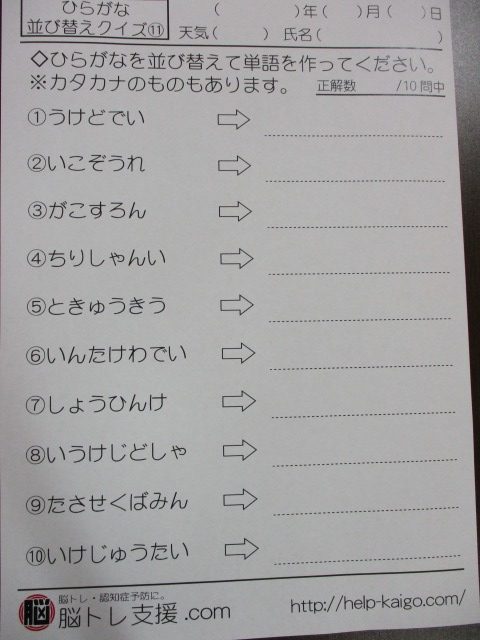 ひらがな
並び替えクイズ⑪
(　　　)年(　　)月(　　)日
天気(　　　)　氏名(　　　　　)
◇ひらがなを並び替えて単語を作ってください。
※カタカナのものもあります。　正解数　　/10問中
①うけどでい
②いこぞうれ
③がこすろん
④ちりしゃんい
⑤ときゅうきう
⑥いんたけわでい
⑦しょうひんけ
⑧いうけじどしゃ
⑨たさせくばみん
⑩いけじゅうたい
脳
脳トレ・認知症予防に。
脳トレ支援.com
http://help-kaigo.com/